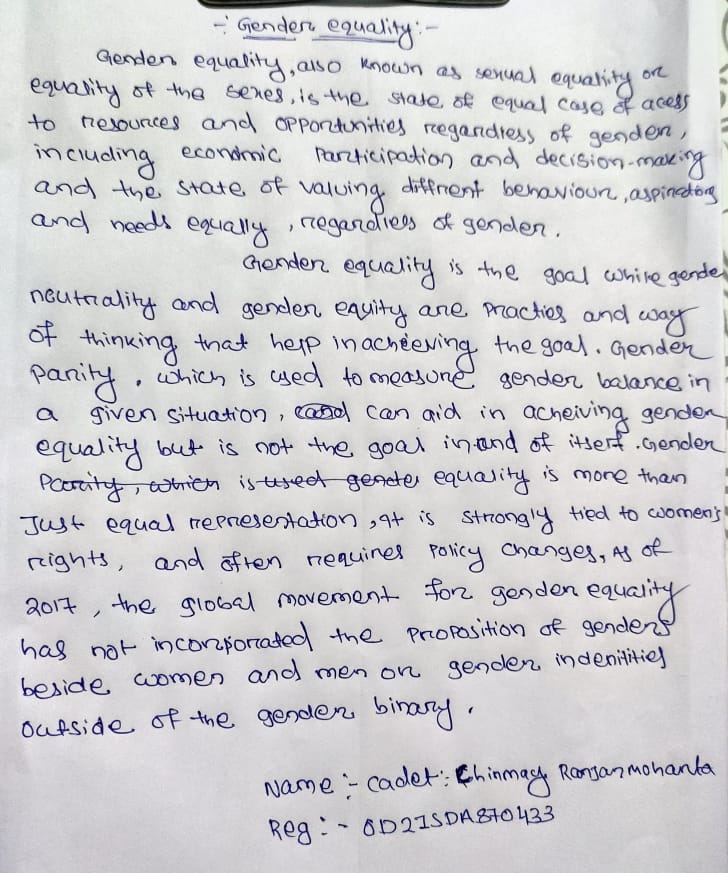 -: Gender equality:-
Gender equality, also known as sexual equality or
equality of the sexes, is the state of equal case of acess
to resources and opportunities regardless of gender,
including economic Participation and decision-making
and the state of valuing diffrent behaviour, aspirations
and needs equally, regardless of gender.
Gender equality is the goal while gender
neutrality and gender equity are practies and way
of thinking that help in acheeving the goal. Gender
Parity, which is used to measure gender balance in
a given situation, can aid in acheiving gender
equality but is not the goal in and of itself. Gender
Parity, which is used gender equality is more than
Just equal representation, It is strongly tied to women's
rights, and often requires Policy changes, As of
2017, the global movement for gender equality
has not incorporated the proposition of genders
beside women and men or gender indenities
outside of the gender binary.
Name :- Cadet: Chinmay Ranjan mohanta
Reg :- OD21SDA870433